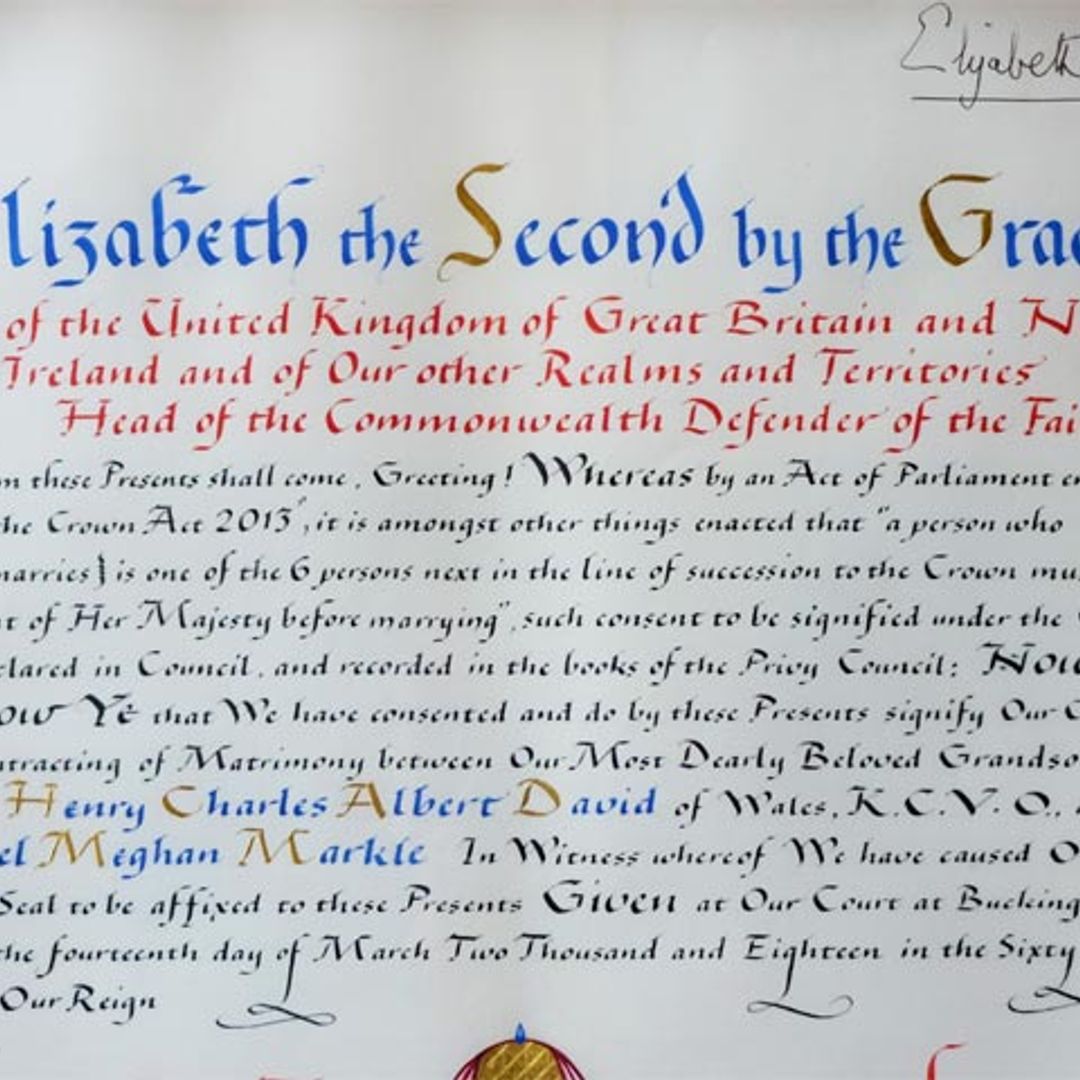 Elizabeth
lizabeth the Second by the Grac
of the United Kingdom of Great Britain and N
Ireland and of Our other Realms and Territories
Head of the Commonwealth Defender of the Fai
m these Presents shall come, Greeting! Whereas by an Act of Parliament en
he Crown Act 2013", it is amongst other things enacted that "a person who
marries} is one of the 6 persons next in the line of succession to the Crown mu
t of Her Majesty before marrying", such consent to be signified under the
clared in Council, and recorded in the books of the Privy Council: Now
ow Ye that We have consented and do by these Presents signify Our C
ntracting of Matrimony between Our Most Dearly Beloved Grandso
Henry Charles Albert David of Wales, K.C.V.O.,
el Meghan Markle In Witness whereof We have caused O
Seal to be affixed to these Presents Given at Our Court at Bucking
the fourteenth day of March Two Thousand and Eighteen in the Sixty
Our Reign